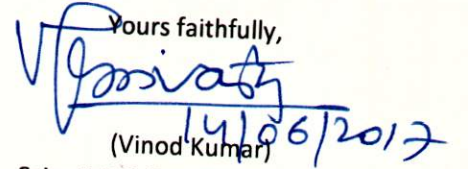 Yours faithfully,
14/06/2017
(Vinod Kumar)